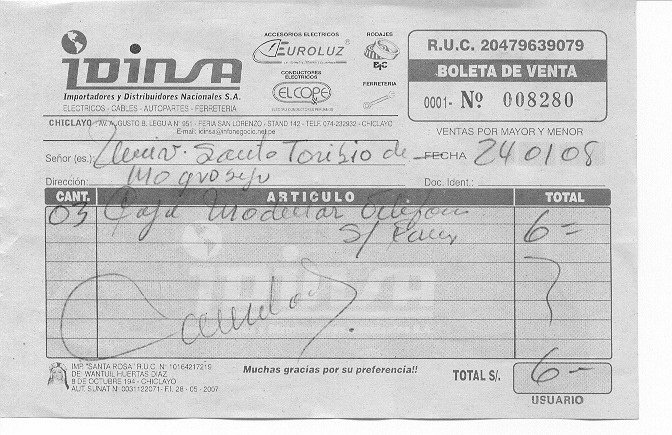 IDINSA
Importadores y Distribuidores Nacionales S.A.
ELECTRICOS - CABLES - AUTOPARTES - FERRETERIA
ACCESORIOS ELECTRICOS
EUROLUZ
CONDUCTORES ELECTRICOS
ELCOPE
RODAJES
FERRETERIA
R.U.C. 20479639079
BOLETA DE VENTA
0001- Nº 008280
CHICLAYO: AV. AUGUSTO B. LEGUIA Nº 951 - FERIA SAN LORENZO - STAND 142 - TELF. 074-232932 - CHICLAYO
E-mail: idinsa@infonegocio.net.pe
VENTAS POR MAYOR Y MENOR
Señor (es): Univ. Santo Toribio de FECHA 24 01 08
Dirección: Mogrovejo Doc. Ident.:
CANT. ARTICULO TOTAL
03 Caja Modular 6=
S/
Cancelado.
IMP. "SANTA ROSA" R.U.C. Nº 10164217219
DE: WANTUIL HUERTAS DIAZ
8 DE OCTUBRE 194 - CHICLAYO
AUT. SUNAT Nº 0031122071- F.I. 28 - 05 - 2007
Muchas gracias por su preferencia!!
TOTAL S/. 6=
USUARIO